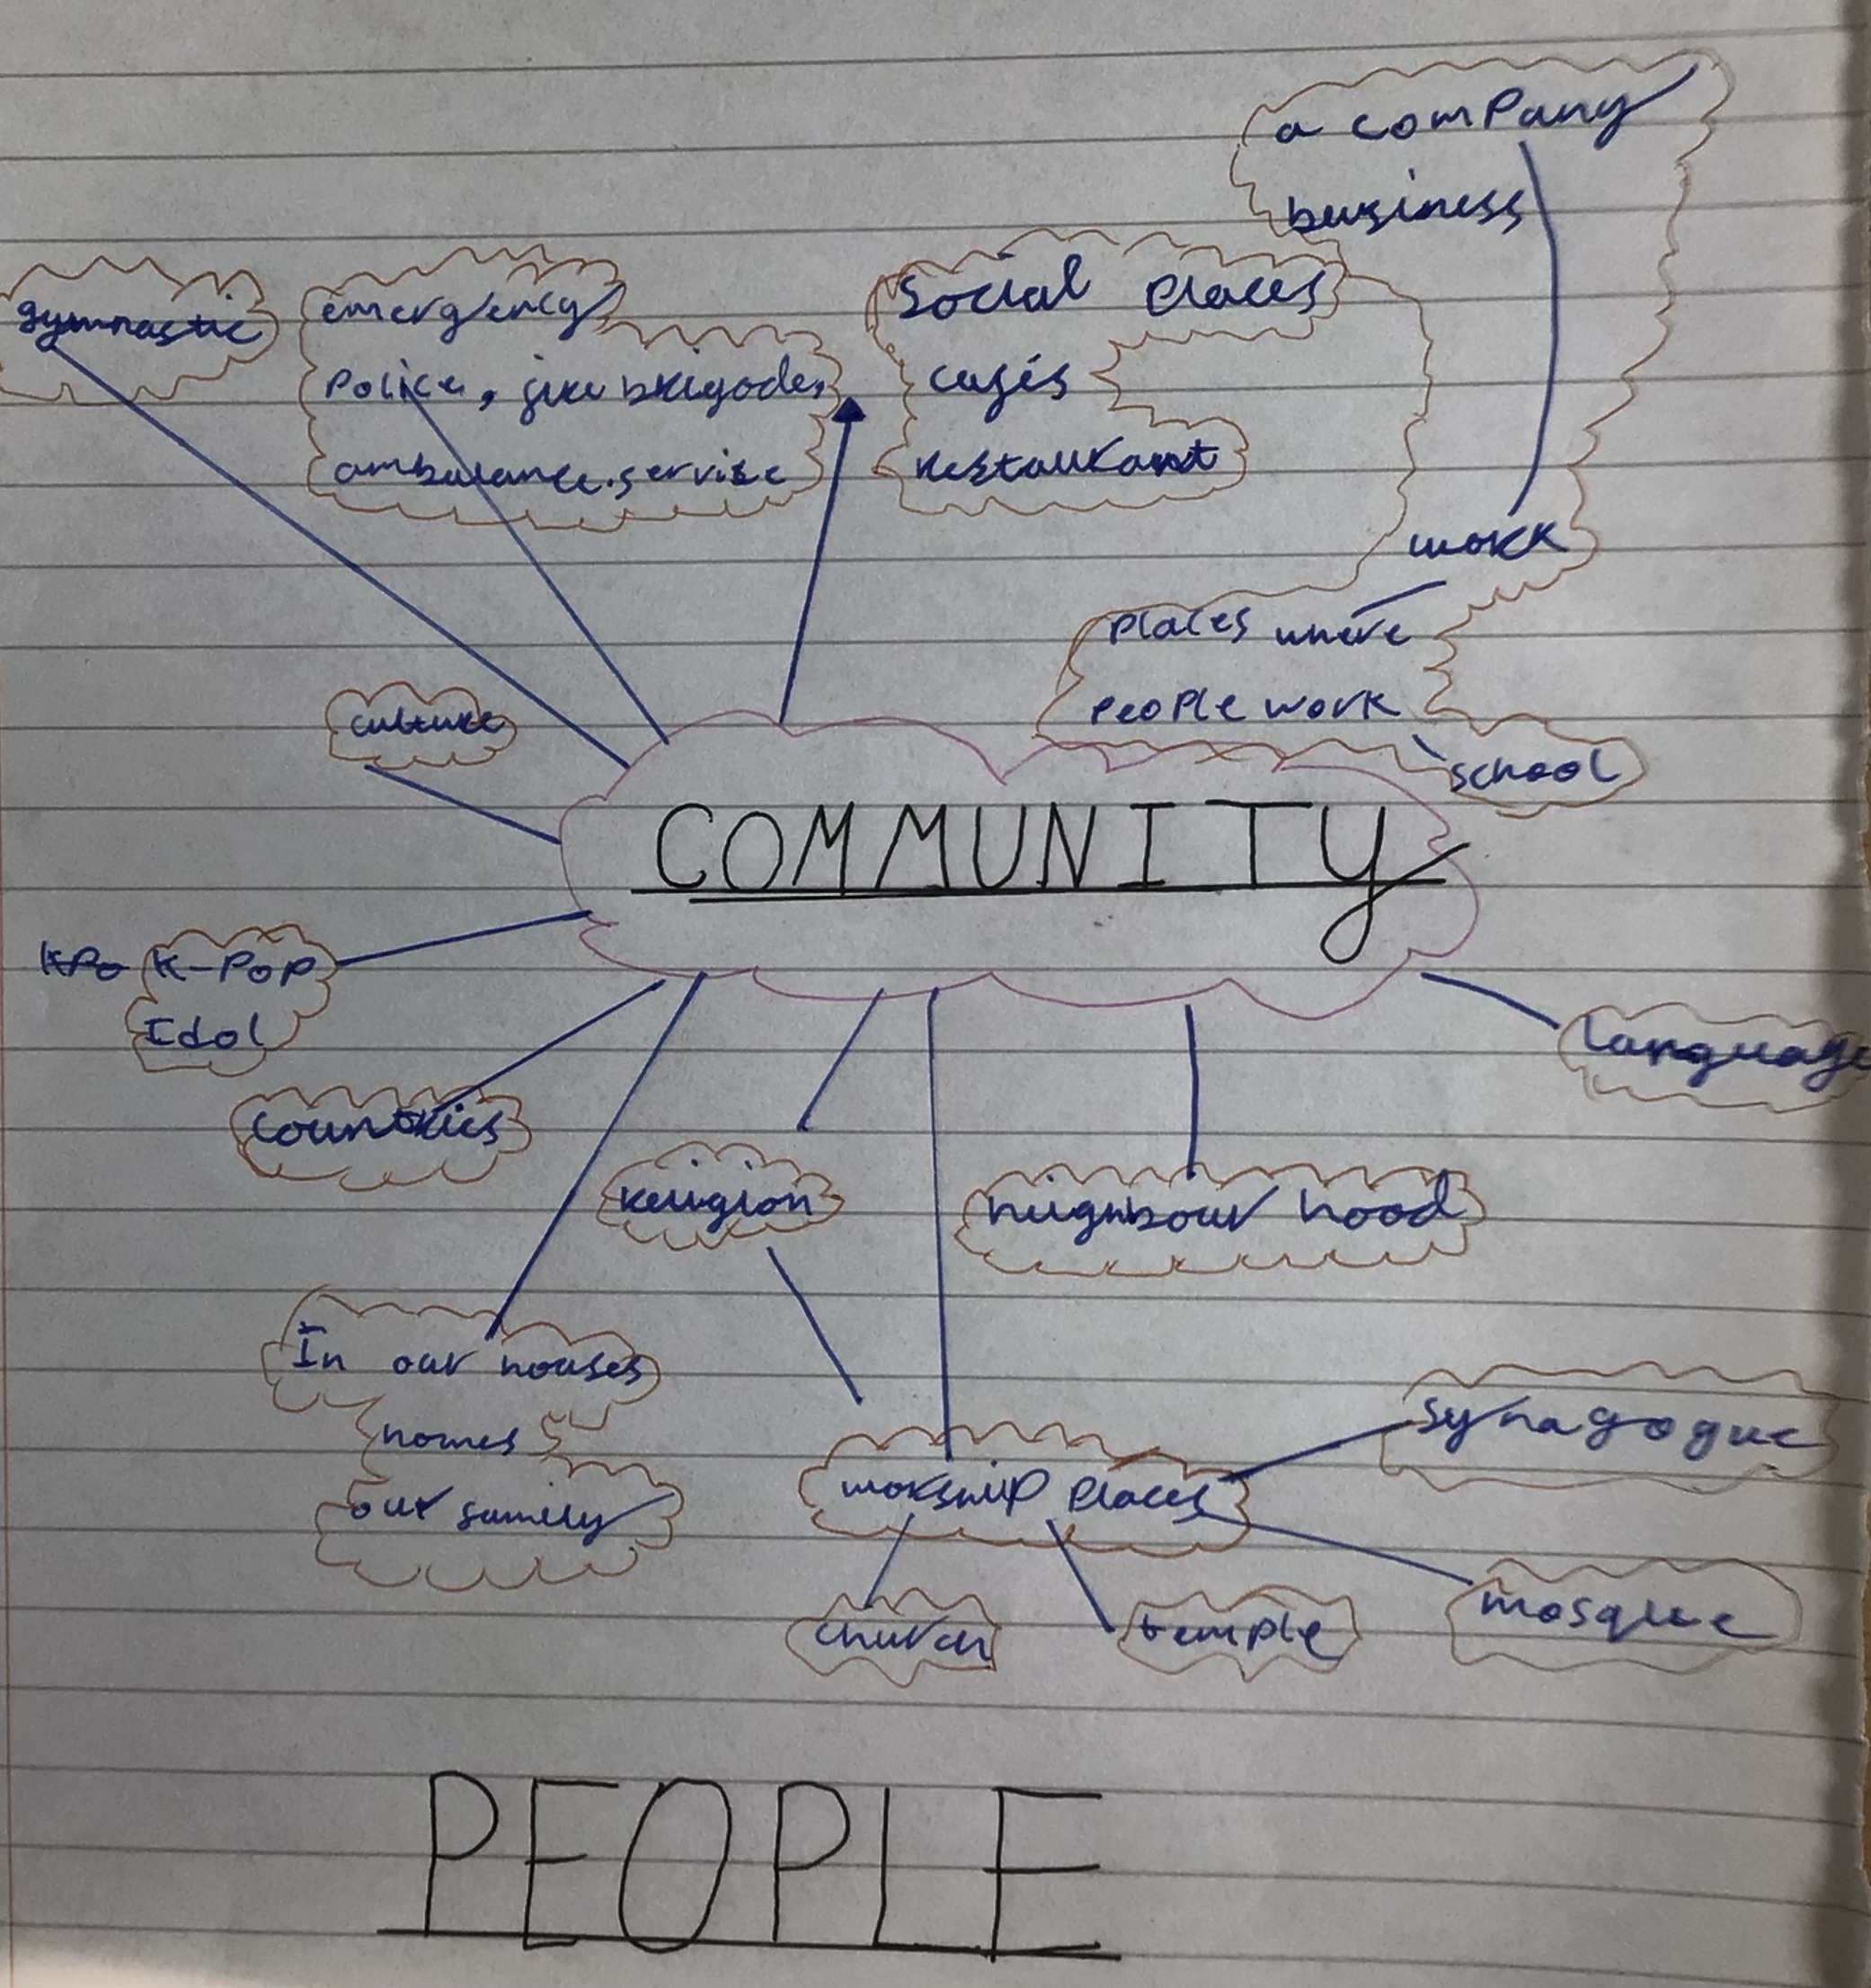 a company
business
gymnastic
emergency
Police, fire brigades,
ambulance.service
Social places
cafés
restaurant
work
places where
people work
school
culture
COMMUNITY
KPo K-Pop
Idol
language
countries
religion
neighbour hood
In our houses
homes
our family
worship places
synagogue
mosque
church
temple
PEOPLE